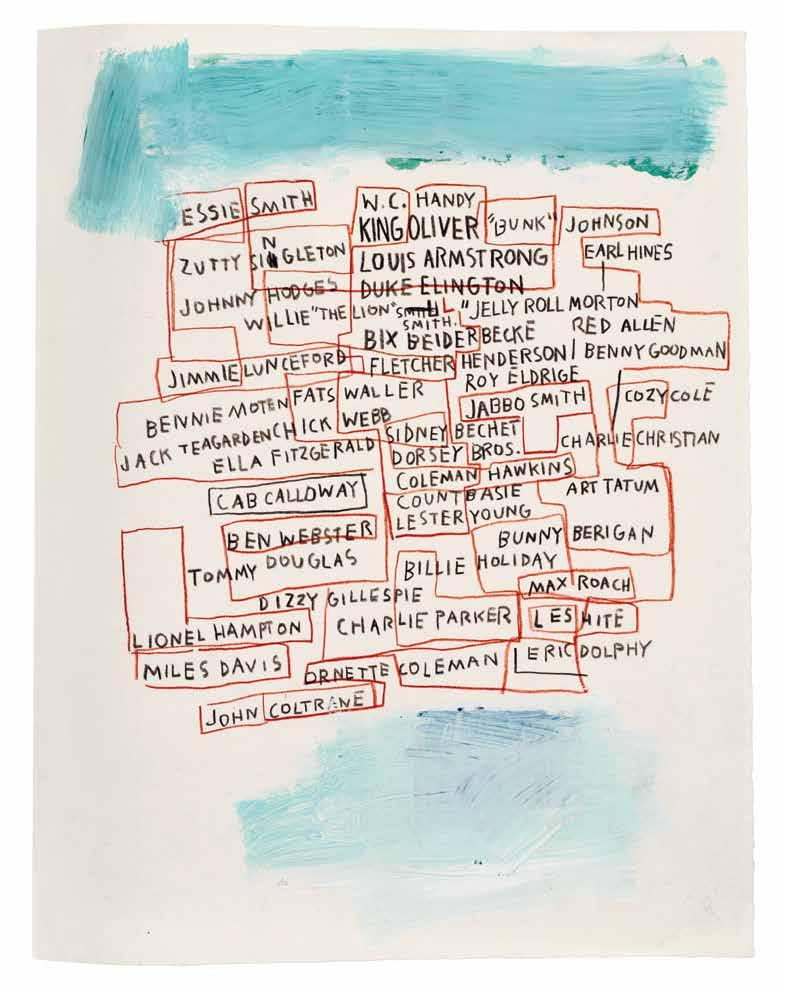 ESSIE SMITH
W.C. HANDY
KING OLIVER "BUNK" JOHNSON
ZUTTY SINGLETON
LOUIS ARMSTRONG
EARL HINES
JOHNNY HODGES
DUKE ELINGTON
WILLIE "THE LION" SMITH.
"JELLY ROLL MORTON
BIX BEIDERBECKE
RED ALLEN
JIMMIE LUNCEFORD
FLETCHER HENDERSON/
BENNY GOODMAN
ROY ELDRIGE
BENNIE MOTEN
FATS WALLER
JABBO SMITH
COZY COLE
JACK TEAGARDEN
CHICK WEBB
SIDNEY BECHET
CHARLIE CHRISTIAN
ELLA FITZGERALD
DORSEY BROS.
COLEMAN HAWKINS
CAB CALLOWAY
COUNT BASIE
ART TATUM
LESTER YOUNG
BEN WEBSTER
BUNNY BERIGAN
TOMMY DOUGLAS
BILLIE HOLIDAY
MAX ROACH
DIZZY GILLESPIE
CHARLIE PARKER
LES HITE
LIONEL HAMPTON
MILES DAVIS
ORNETTE COLEMAN
ERIC DOLPHY
JOHN COLTRANE